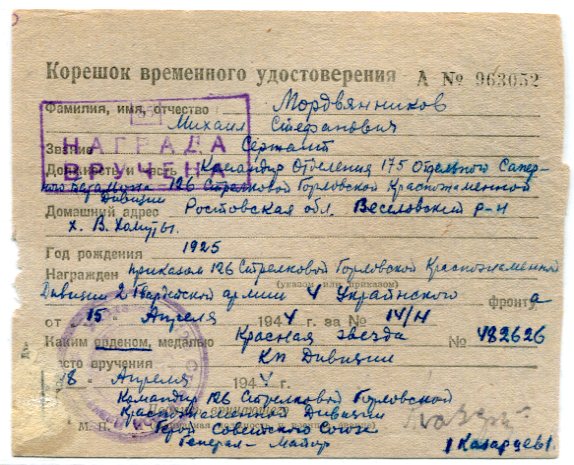 Корешок временного удостоверения А № 963052
Фамилия, имя, отчество Мордвянников
Михаил Стефанович
НАГРАДА
ВРУЧЕНА
Звание Сержант
Должность и часть Командир Отделения 175 Отдельного Сапер-
126 Стрелковой Горловской Краснознаменной
Дивизии
Домашний адрес Ростовская обл. Веселовский р-н
х. В. Хомутец
Год рождения 1925
Награжден приказом 126 Стрелковой Горловской Краснознаменной
(указом или приказом)
Дивизии 2 Гвардейской армии 4 Украинского фронта
от „15" Апреля 1944 г. за № 14/Н
Каким орденом, медалью Красная звезда № 482626
Место вручения КП Дивизии
Апреля 1944 г.
Командир 126 Стрелковой Горловской
Краснознаменной Дивизии
М. П. Герой Советского Союза
Генерал-Майор /Казарцев/.